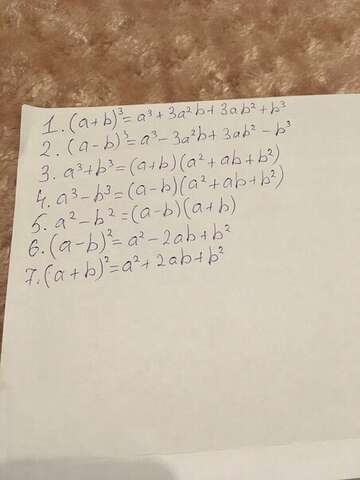 1. (a+b)³=a³+3a²b+3ab²+b³
2. (a-b)³=a³-3a²b+3ab²-b³
3. a³+b³=(a+b)(a²+ab+b²)
4. a³-b³=(a-b)(a²+ab+b²)
5. a²-b²=(a-b)(a+b)
6. (a-b)²=a²-2ab+b²
7. (a+b)²=a²+2ab+b²